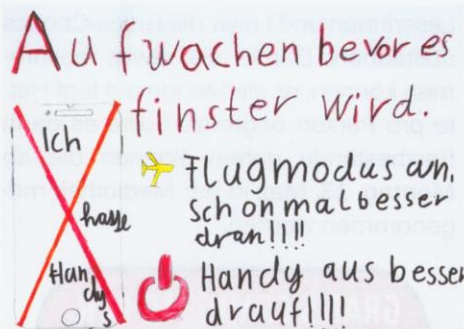 Aufwachen bevor es
finster wird.
Ich
hasse
Handys
Flugmodus an,
schonmal besser
dran!!!!
Handy aus besser
drauf!!!!